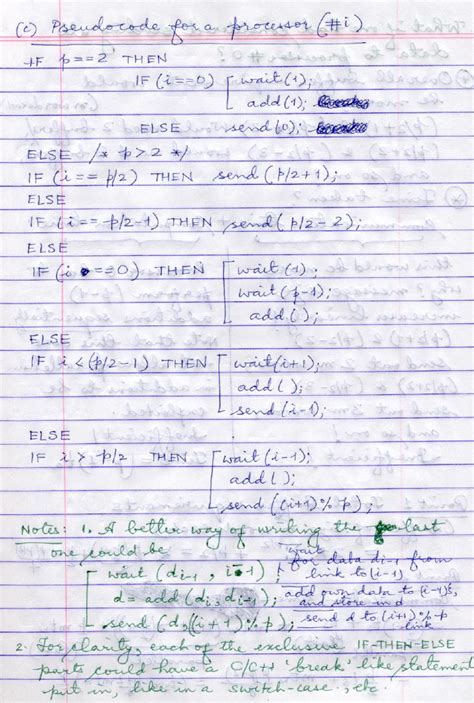 (c) Pseudocode for a processor (#i)
IF p==2 THEN
IF (i==0) [ wait(1);
add(1);
ELSE send(0);
ELSE /* p>2 */
IF (i == p/2) THEN send(p/2+1);
ELSE
IF (i == p/2-1) THEN send(p/2-2);
ELSE
IF (i ==0) THEN [ wait(1);
wait(p-1);
add();
ELSE
IF i < (p/2-1) THEN [ wait(i+1);
add( );
send(i-1);
ELSE
IF i > p/2 THEN [ wait(i-1);
add( );
send((i+1)% p);
Notes: 1. A better way of writing the last
one could be
[ wait (di-1, i-1) ; wait for data di-1 from link to (i-1)
d = add (di, di-1) ; add own data to (i-1)'s, and store in d
send (d,(i+1)%p); send d to (i+1)%p link
2. For clarity, each of the exclusive IF-THEN-ELSE
parts could have a C/C++ 'break' like statement
put in, like in a switch-case, etc.